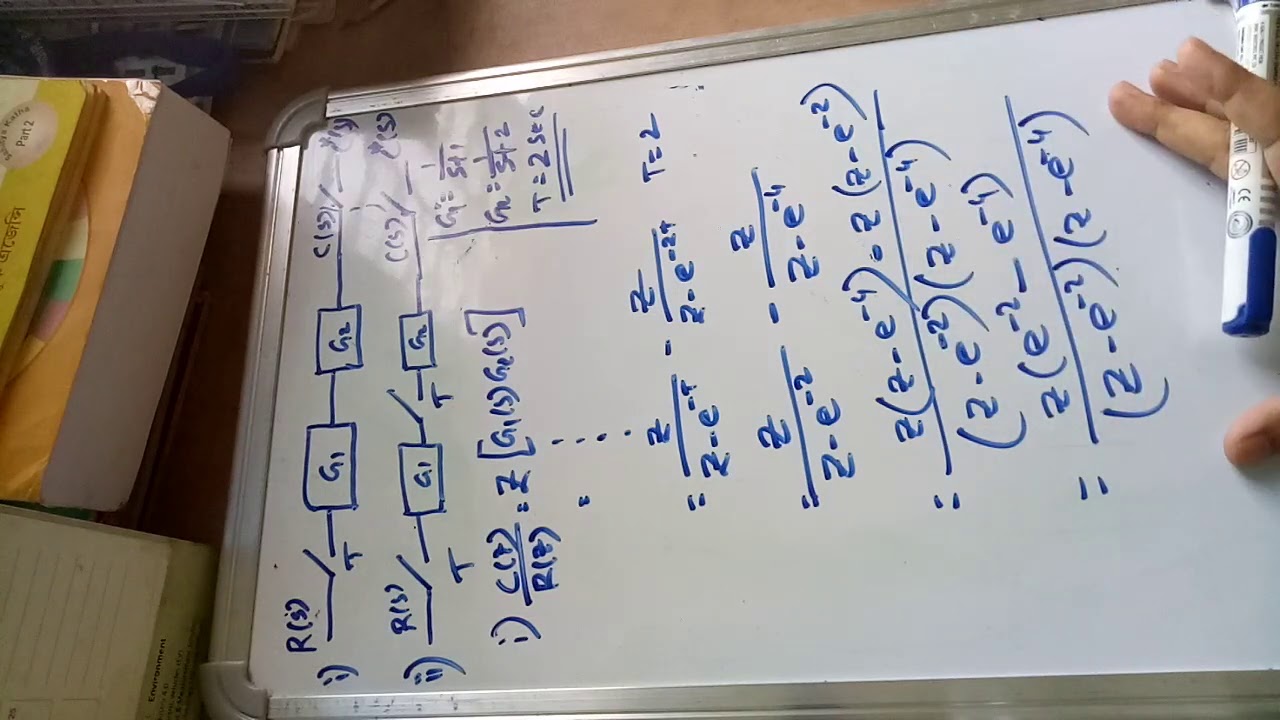 i) R(s) T G₁ G₂ C(s) C*(s)
ii) R(s) T G₁ T G₂ C(s) C*(s)
G₁ = 1/(s+1)
G₂ = 1/(s+2)
T = 2 sec
i) C(z)/R(z) = Z[G₁(s)G₂(s)]
=
= z/(z - e⁻ᵀ) - z/(z - e⁻²ᵀ) T = 2
= z/(z - e⁻²) - z/(z - e⁻⁴)
= z(z - e⁻⁴) - z(z - e⁻²) / (z - e⁻²)(z - e⁻⁴)
= z(e⁻² - e⁻⁴) / (z - e⁻²)(z - e⁻⁴)
Part 2
Environment